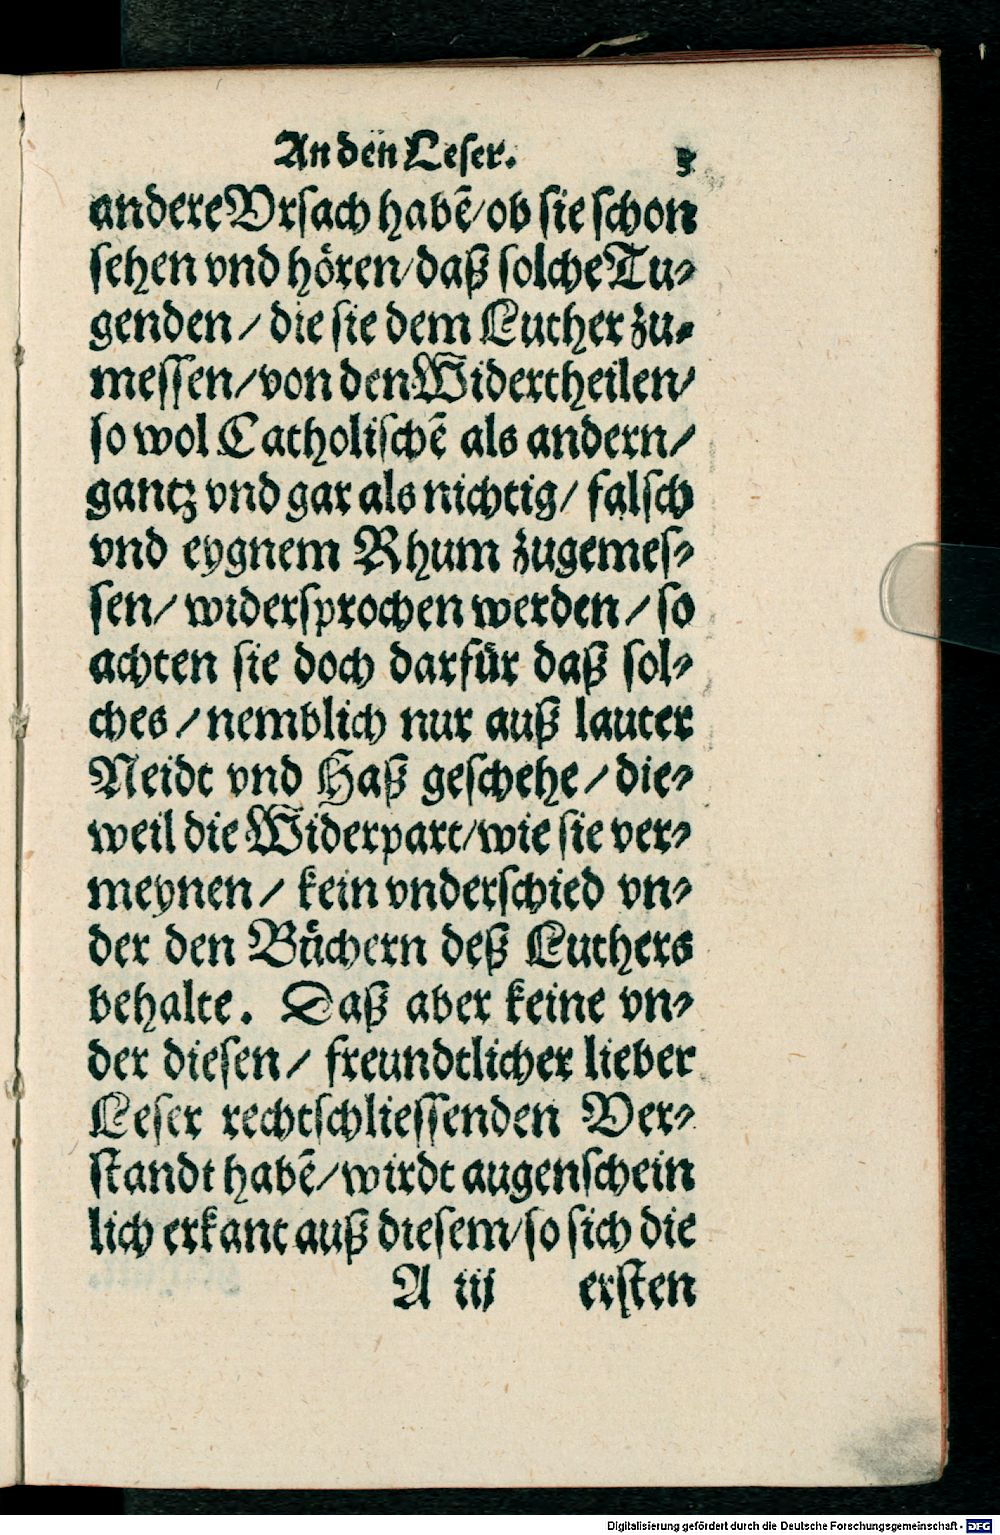 An den Leser. 3
andere Vrsach habẽ/ ob sie schon
sehen vnd hören/ daß solche Tu-
genden/ die sie dem Luther zu-
messen/ von den Widertheilen/
so wol Catholischẽ als andern/
gantz vnd gar als nichtig/ falsch
vnd eygnem Rhum zugemes-
sen/ widersprochen werden/ so
achten sie doch darfür daß sol-
ches/ nemblich nur auß lauter
Neidt vnd Haß geschehe/ die-
weil die Widerpart/ wie sie ver-
meynen/ kein vnderschied vn-
der den Büchern deß Luthers
behalte. Daß aber keine vn-
der diesen/ freundtlicher lieber
Leser rechtschliessenden Ver-
standt habẽ/ wirdt augenschein
lich erkant auß diesem/ so sich die
A iij ersten
Digitalisierung gefördert durch die Deutsche Forschungsgemeinschaft - DFG